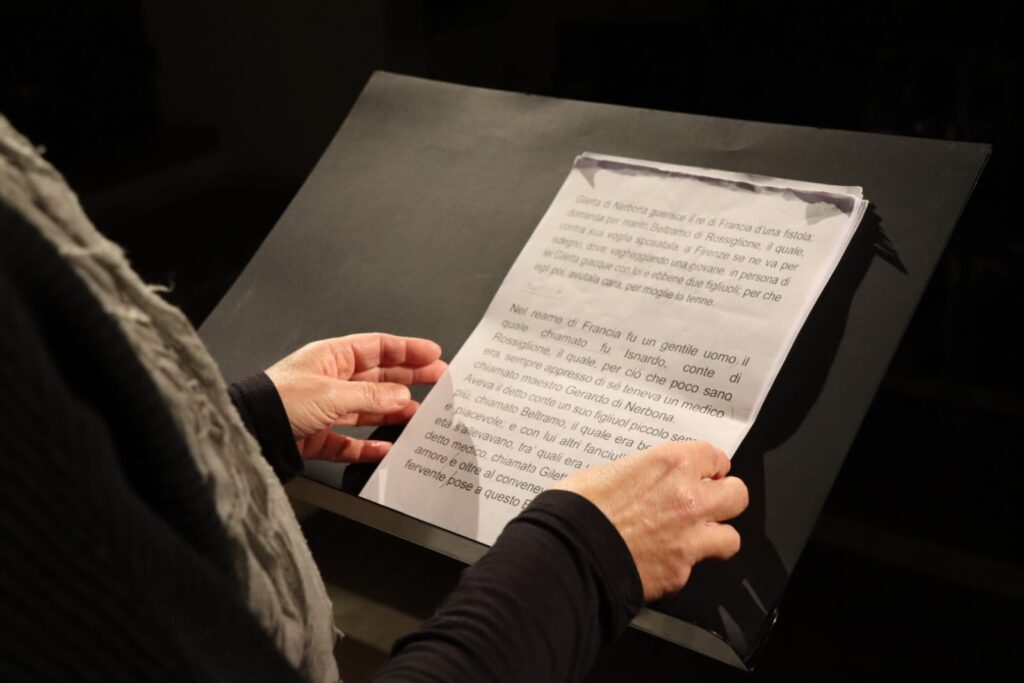 Giletta di Nerbona guerisce il re di Francia d'una fistola;
domanda per marito Beltramo di Rossiglione, il quale,
contra sua voglia sposatala, a Firenze se ne va per
isdegno, dove, vagheggiando una giovane, in persona di
lei Giletta giacque con lui e ebbene due figliuoli; per che
egli poi, avutala cara, per moglie la tenne.
Nel reame di Francia fu un gentile uomo, il
quale chiamato fu Isnardo, conte di
Rossiglione, il quale, per ciò che poco sano
era, sempre appresso di sé teneva un medico
chiamato maestro Gerardo di Nerbona.
Aveva il detto conte un suo figliuol piccolo
più, chiamato Beltramo, il quale era
e piacevole; e con lui altri
età s'allevavano, tra' quali era
detto medico, chiamata
amore e oltre al
fervente pose a questo